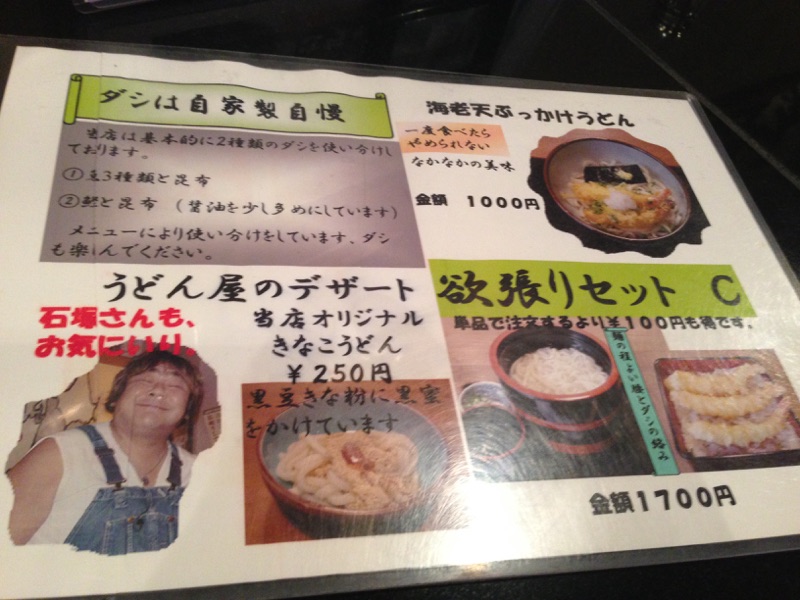 ダシは自家製自慢
当店は基本的に2種類のダシを使い分けし
ております。
①豆3種類と昆布
②鰹と昆布 (醤油を少し多めにしています)
メニューにより使い分けをしています、ダシ
も楽しんでください。
海老天ぶっかけうどん
一度食べたら
やめられない
なかなかの美味
金額 1000円
うどん屋のデザート
石塚さんも、
お気にいり。
当店オリジナル
きなこうどん
¥250円
黒豆きな粉に黒蜜
をかけています
欲張りセット C
単品で注文するより¥100円も得です。
麺の程よい腰とダシの絡み
金額1700円